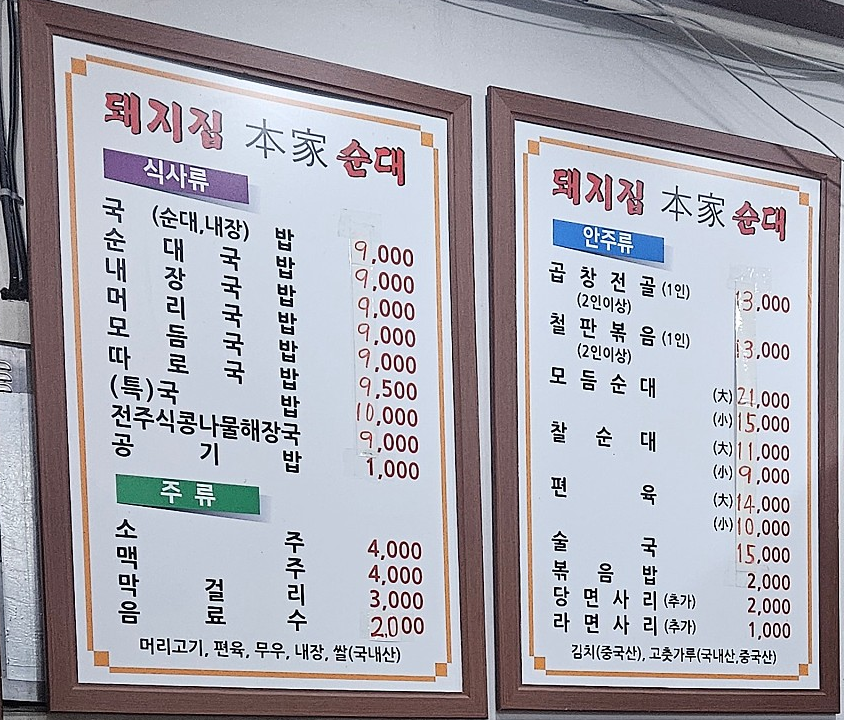 돼지집 本家 순대
식사류
국 (순대,내장) 밥 9,000
순 대 국 밥 9,000
내 장 국 밥 9,000
머 리 국 밥 9,000
모 듬 국 밥 9,000
따 로 국 밥 9,500
(특)국 밥 10,000
전주식콩나물해장국 9,000
공 기 밥 1,000
주 류
소 주 4,000
맥 주 4,000
막 걸 리 3,000
음 료 수 2,000
머리고기, 편육, 무우, 내장, 쌀(국내산)
돼지집 本家 순대
안주류
곱 창 전 골 (1인) 13,000
(2인이상)
철 판 볶 음 (1인) 13,000
(2인이상)
모 듬 순 대 (大) 21,000
(小) 15,000
찰 순 대 (大) 11,000
(小) 9,000
편 육 (大) 14,000
(小) 10,000
술 국 15,000
볶 음 밥 2,000
당 면 사 리 (추가) 2,000
라 면 사 리 (추가) 1,000
김치(중국산), 고춧가루(국내산,중국산)